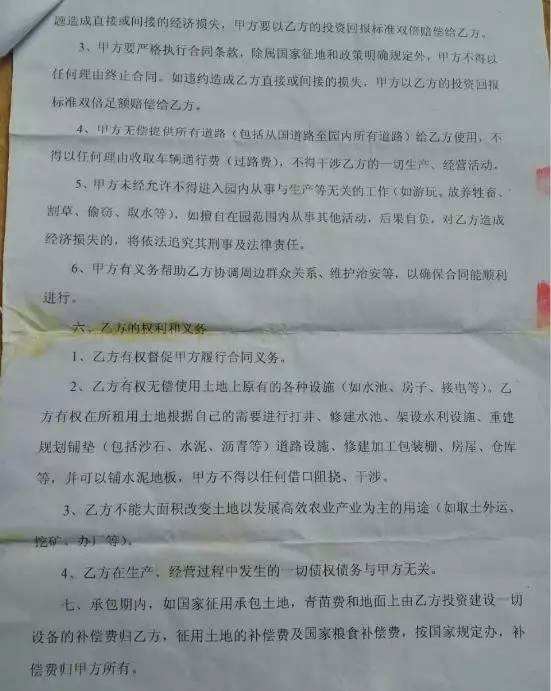 题造成直接或间接的经济损失，甲方要以乙方的投资回报标准双倍赔偿给乙方。
3、甲方要严格执行合同条款，除属国家征地和政策明确规定外，甲方不得以
任何理由终止合同。如违约造成乙方直接或间接的损失，甲方以乙方的投资回报
标准双倍足额赔偿给乙方。
4、甲方无偿提供所有道路（包括从国道路至园内所有道路）给乙方使用，不
得以任何理由收取车辆通行费（过路费），不得干涉乙方的一切生产、经营活动。
5、甲方未经允许不得进入园内从事与生产等无关的工作（如游玩、放养牲畜、
割草、偷窃、取水等），如擅自在园范围内从事其他活动，后果自负，对乙方造成
经济损失的，将依法追究其刑事及法律责任。
6、甲方有义务帮助乙方协调周边群众关系、维护治安等，以确保合同能顺利
进行。
六、乙方的权利和义务
1、乙方有权督促甲方履行合同义务。
2、乙方有权无偿使用土地上原有的各种设施（如水池、房子、接电等）。乙
方有权在所租用土地根据自己的需要进行打井、修建水池、架设水利设施、重建
规划铺垫（包括沙石、水泥、沥青等）道路设施、修建加工包装棚、房屋、仓库
等，并可以铺水泥地板，甲方不得以任何借口阻挠、干涉。
3、乙方不能大面积改变土地以发展高效农业产业为主的用途（如取土外运、
挖矿、办厂等）。
4、乙方在生产、经营过程中发生的一切债权债务与甲方无关。
七、承包期内，如国家征用承包土地，青苗费和地面上由乙方投资建设一切
设备的补偿费归乙方，征用土地的补偿费及国家粮食补偿费，按国家规定办，补
偿费归甲方所有。